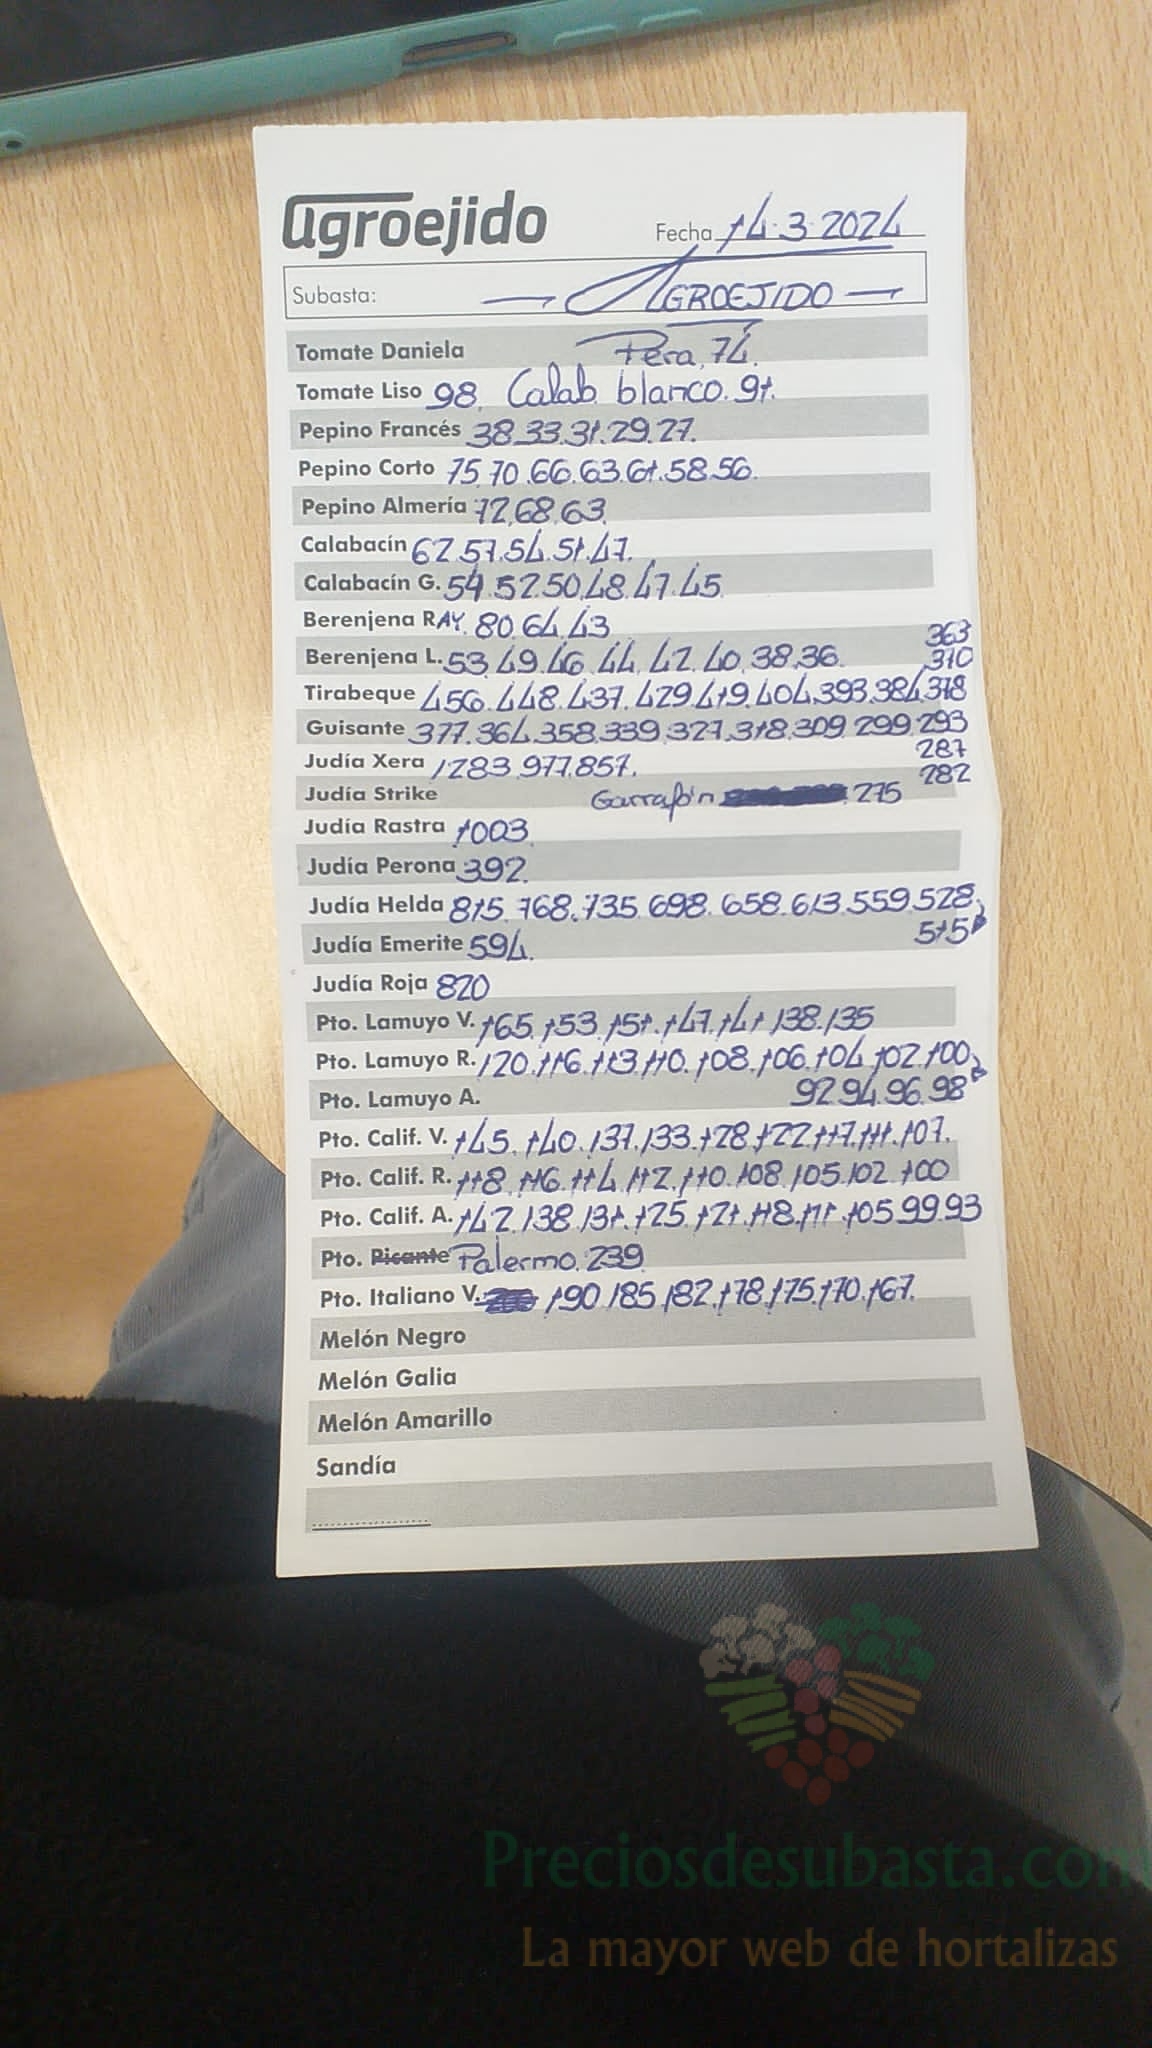 agroejido
Fecha 14.3.2024
Subasta: AGROEJIDO
Tomate Daniela Pera, 74.
Tomate Liso 98. Calab. blanco. 91.
Pepino Francés 38.33.31.29.27.
Pepino Corto 75.70.66.63.61.58.56.
Pepino Almería 72.68.63.
Calabacín 62.57.54.51.47.
Calabacín G. 54.52.50.48.47.45
Berenjena RAY. 80.64.43
363
Berenjena L. 53.49.46.44.42.40.38.36.
370
Tirabeque 456.448.437.429.419.404.393.384.378
Guisante 377.364.358.339.327.318.309.299.293
287
Judía Xera 1283.977.857.
282
Judía Strike Garrafón 275
Judía Rastra 1003
Judía Perona 392.
Judía Helda 815.768.735.698.658.613.559.528
Judía Emerite 594. 515
Judía Roja 820
Pto. Lamuyo V. 165.153.151.147.141.138.135
Pto. Lamuyo R. 120.116.113.110.108.106.104.102.100
Pto. Lamuyo A. 92.94.96.98
Pto. Calif. V. 145.140.137.133.128.122.117.111.107.
Pto. Calif. R. 118.116.114.112.110.108.105.102.100
Pto. Calif. A. 142.138.131.125.121.118.111.105.99.93
Pto. Picante Palermo. 239
Pto. Italiano V. 190.185.182.178.175.170.167.
Melón Negro
Melón Galia
Melón Amarillo
Sandía
Preciosdesubasta.com
La mayor web de hortalizas